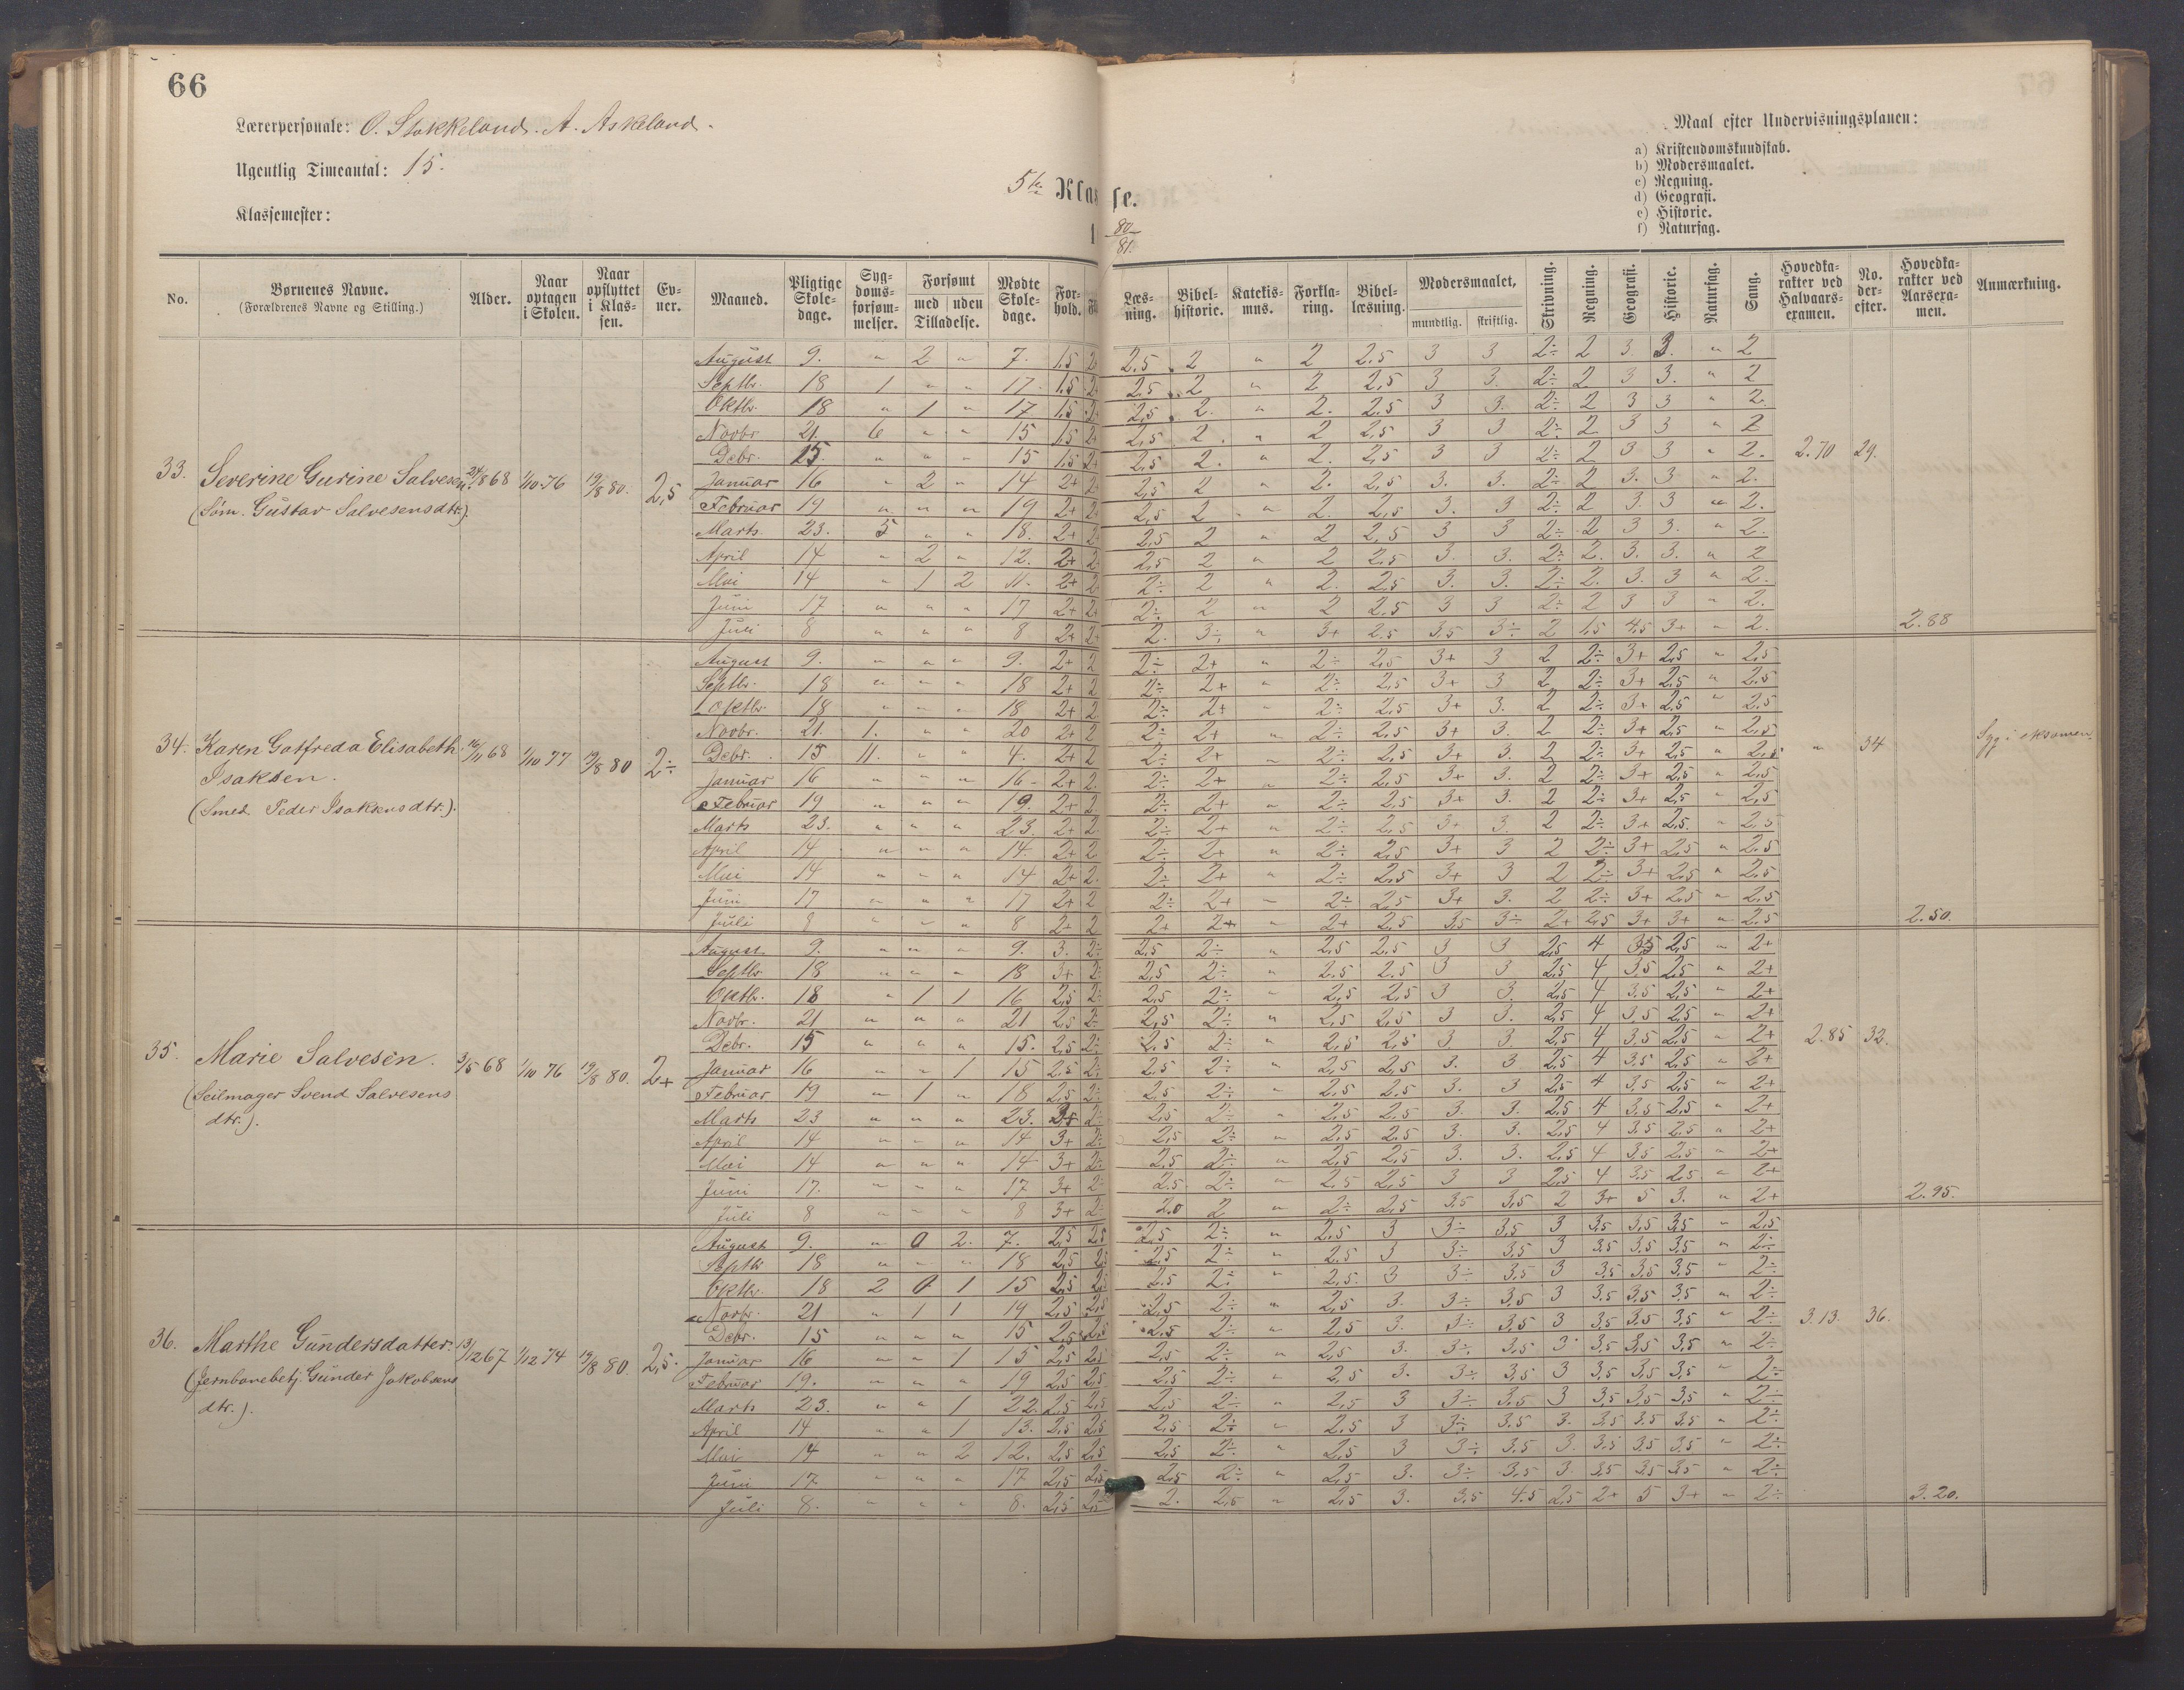 66
Lærerpersonale: O. Stokkeland. A. Askeland.
Ugentlig Timeantal: 15.
Klassemester:
5te Klasse.
80/81.
Maal efter Undervisningsplanen:
a) Kristendomskundskab.
b) Modersmaalet.
c) Regning.
d) Geografi.
e) Historie.
f) Naturfag.
No. Børnenes Navne. (Forældrenes Navne og Stilling.) Alder. Naar optagen i Skolen. Naar opflyttet i Klassen. Evner. Maaned. Pligtige Skoledage. Sygdomsforsømmelser. Forsømt med uden Tilladelse. Mødte Skoledage. Forhold. Læsning. Bibelhistorie. Katekismus. Forklaring. Bibellæsning. Modersmaalet, mundtlig. skriftlig. Skrivning. Regning. Geografi. Historie. Naturfag. Sang. Hovedkarakter ved Halvaarsexamen. No. derefter. Hovedkarakter ved Aarsexamen. Anmærkning.
33. Severine Gurine Salvesen. 24/8 68 1/10 76 19/8 80. 2,5
(Søm. Gustav Salvesens dtr.).
August 9. " 2 " 7. 1,5 2,5 2 " 2 2,5 3 3 2÷ 2 3. 3. " 2
Septbr. 18 1 " " 17 1,5 2,5 2 " 2 2,5 3 3. 2÷ 2 3 3. " 2
Oktbr. 18 " 1 " 17 1,5 2,5 2. " 2. 2,5 3 3. 2÷ 2 3 3 " 2.
Novbr 21. 6 " " 15 1,5 2+ 2,5 2. " 2 2,5 3 3 2÷ 2. 3 3 " 2
Debr. 15. " " " 15 1,5 2+ 2,5 2. " 2. 2,5 3 3 2÷ 2 3 3 " 2. 2.70 29.
Januar 16 " 2 " 14 2+ 2,5 2 " 2. 2,5 3. 3. 2÷ 2 3. 3 " 2.
Februar 19 " " " 19 2+ 2,5 2 " 2. 2,5 3. 3 2÷ 2 3. 3 " 2.
Marts 23. 5 " " 18. 2+ 2,5 2 " 2 2,5 3 3 2÷ 2 3 3. " 2.
April 14 " 2 " 12. 2+ 2,5 2 " 2 2,5 3. 3. 2÷ 2. 3. 3. " 2
Mai 14 " 1 2 11. 2+ 2 2÷ 2 " 2. 2,5 3. 3. 2÷ 2. 3. 3 " 2.
Juni 17 " " " 17 2+ 2+ 2÷ 2 " 2 2,5 3 3 2÷ 2 3 3 " 2.
Juli 8 " " " 8 2+ 2+ 2. 3÷ " 3+ 2.5 3,5 3÷ 2 1,5 4,5 3+ " 2. 2.88
34. Karen Gotfreda Elisabeth 16/11 68 1/10 77 19/8 80 2÷
Isaksen.
(Smed Peder Isaksens dtr.).
August 9. " " " 9. 2+ 2 2÷ 2+ " 2÷ 2,5 3+ 3 2 2÷ 3+ 2,5 " 2,5
Septbr. 18 " " " 18 2+ 2 2÷ 2+ " 2÷ 2,5 3+ 3 2 2÷ 3+ 2,5 " 2,5
Oktbr. 18 " " " 18 2+ 2 2÷ 2+ " 2÷ 2,5 3+ 3. 2 2÷ 3+ 2,5 " 2,5
Novbr. 21. 1. " " 20 2+ 2 2÷ 2+ " 2÷ 2,5 3+ 3. 2 2÷ 3+ 2,5 " 2,5
Debr. 15 11. " " 4. 2+ 2 2÷ 2+ " 2÷ 2,5 3+ 3. 2 2÷ 3+ 2,5 " 2,5 " 34 Syg i eksamen.
Januar 16 " " " 16 2+ 2. 2÷ 2+ " 2÷ 2,5 3+ 3. 2 2÷ 3+ 2,5 " 2,5
Februar 19 " " " 19. 2+ 2 2÷ 2+ " 2÷ 2,5 3+ 3. 2 2÷ 3+ 2,5 " 2,5
Marts 23. " " " 23. 2+ 2 2÷ 2+ " 2÷ 2,5 3+ 3. 2 2÷ 3+ 2,5. " 2,5
April 14 " " " 14. 2+ 2 2÷ 2+ " 2÷ 2,5 3+ 3 2 2÷ 3+ 2,5 " 2,5
Mai 14 " " " 14 2+ 2. 2÷ 2+ " 2÷ 2,5 3+ 3 2 2÷ 3+ 2,5 " 2,5
Juni 17 " " " 17 2+ 2 2÷ 2+ " 2÷ 2,5 3+ 3. 2 2÷ 3+ 2,5 " 2,5
Juli 8 " " " 8 2+ 2 2+ 2+ " 2+ 2,5 3,5 3÷ 2+ 2,5 3+ 3+ " 2,5 2.50.
35. Marie Salvesen. 9/5 68 1/10 76 19/8 80. 2+
(Seilmager Svend Salvesens
dtr.).
August 9. " " " 9. 3. 2÷ 2,5 2÷ " 2,5 2,5 3 3 2,5 4 3,5 2,5 " 2+
Septbr 18 " " " 18 3+ 2÷ 2,5 2÷ " 2,5 2,5 3 3 2,5 4 3,5 2,5 " 2+
Oktbr. 18 " 1 1 16 2,5 2÷ 2,5 2÷ " 2,5 2,5 3 3. 2,5 4 3,5 2,5 " 2+
Novbr. 21 " " " 21 2,5 2÷ 2,5 2÷ " 2,5 2,5 3 3. 2,5 4 3,5 2,5 " 2+
Debr. 15 " " " 15. 2,5 2÷ 2,5 2÷ " 2,5 2,5 3 3. 2,5 4 3,5 2,5 " 2+ 2.85 32.
Januar 16 " " 1 15 2,5 2÷ 2,5 2÷ " 2,5 2,5 3. 3 2,5 4 3,5 2,5 " 2+
Februar 19 " 1 " 18 2,5 2÷ 2,5 2÷ " 2,5 2,5 3. 3 2,5 4 3,5 2,5 " 2+
Marts 23 " " " 23. 2÷ 2,5 2÷ " 2,5 2,5 3. 3. 2,5 4 3,5 2,5 " 2+
April 14 " " " 14 3+ 2÷ 2,5 2÷ " 2,5 2,5 3. 3. 2,5 4 3,5 2,5 " 2+
Mai 14 " " " 14 3+ 2÷ 2,5 2÷ " 2,5 2,5 3. 3. 2,5 4 3,5 2,5 " 2+
Juni 17. " " " 17 3+ 2÷ 2,5 2÷ " 2,5 2,5 3 3 2,5 4 3,5 2,5 " 2+
Juli 8 " " " 8 3+ 2÷ 2,0 2 " 2÷ 2,5 3,5 3,5 2 3+ 5 3. " 2+ 2.95.
36. Marthe Gundersdatter. 13/12 67 1/12 74 19/8 80. 2,5.
(Jernbanebetj. Gunder Jakobsens
dtr.).
August 9. " 0 2. 7. 2,5 2,5 2,5 2÷ " 2,5 3 3÷ 3,5 3 3,5 3,5 3,5 " 2,5
Septbr 18 " " " 18 2,5 2,5 2,5 2÷ " 2,5 3 3÷ 3,5 3 3,5 3,5 3,5 " 2÷
Oktbr. 18 2 0 1 15 2,5 2,5 2,5 2÷ " 2,5 3 3÷ 3,5 3 3,5 3,5 3,5 " 2÷
Novbr. 21 " 1 1 19 2,5 2,5 2,5 2÷ " 2,5 3. 3÷ 3,5 3 3,5 3,5 3,5 " 2÷
Debr. 15 " " " 15 2,5 2,5 2,5 2÷ " 2,5 3. 3÷ 3,5 3 3,5 3,5 3,5 " 2÷ 3.13. 36.
Januar 16 " " 1 15 2,5 2,5 2,5 2÷ " 2,5 3. 3÷ 3,5 3 3,5 3,5 3,5 " 2÷
Februar 19. " " " 19 2,5 2,5 2,5 2÷ " 2,5 3. 3÷ 3,5 3 3,5 3,5 3,5 " 2÷
Marts 23. " " 1 22. 2,5 2,5 2,5 2÷ " 2,5 3 3÷ 3,5 3 3,5 3,5 3,5 " 2÷
April 14 " " 1 13. 2,5 2,5 2,5 2÷ " 2,5 3 3÷ 3,5 3. 3,5 3,5 3,5 " 2÷
Mai 14 " " 2 12. 2,5 2,5 2,5 2÷ " 2,5 3 3÷ 3,5 3. 3,5 3,5 3,5 " 2÷
Juni 17. " " " 17 2,5 2,5 2,5 2÷ " 2,5 3. 3÷ 3,5 3. 3,5 3,5 3,5 " 2÷
Juli 8. " " " 8. 2,5 2,5 2. 2,5 " 2,5 3. 3,5 4.5 2,5 2+ 5 3+ " 2÷ 3.20.